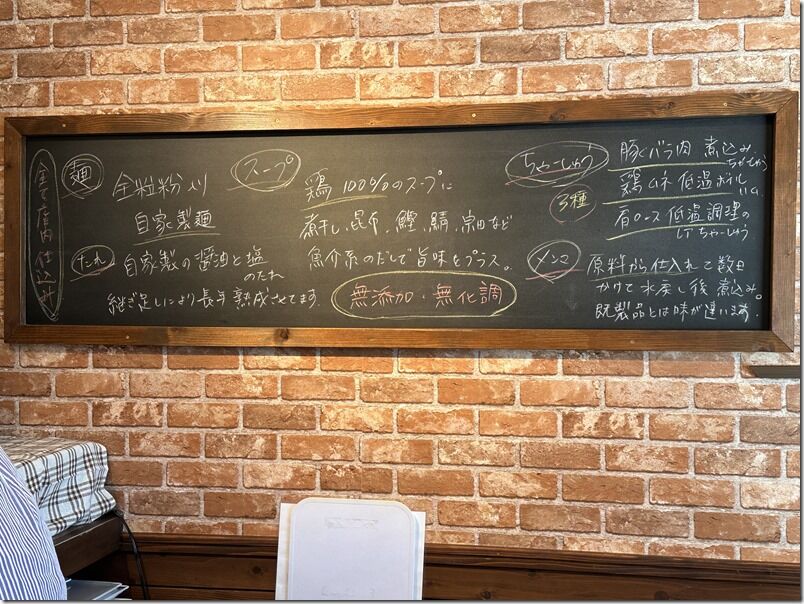 全て店内仕込み
麺
全粒粉入り
自家製麺
たれ
自家製の醤油と塩
のたれ
継ぎ足しにより長年熟成させてます。
スープ
鶏100%のスープに
煮干し、昆布、鰹、鯖、宗田など
魚介系のだしで旨味をプラス。
無添加・無化調
ちゃーしゅう
3種
豚バラ肉 煮込み
ちゃーしゅう
鶏ムネ 低温ボイル
肩ロース 低温調理の
ちゃーしゅう
メンマ
原料から仕入れて数日
かけて水戻し後煮込み。
既製品とは味が違います。